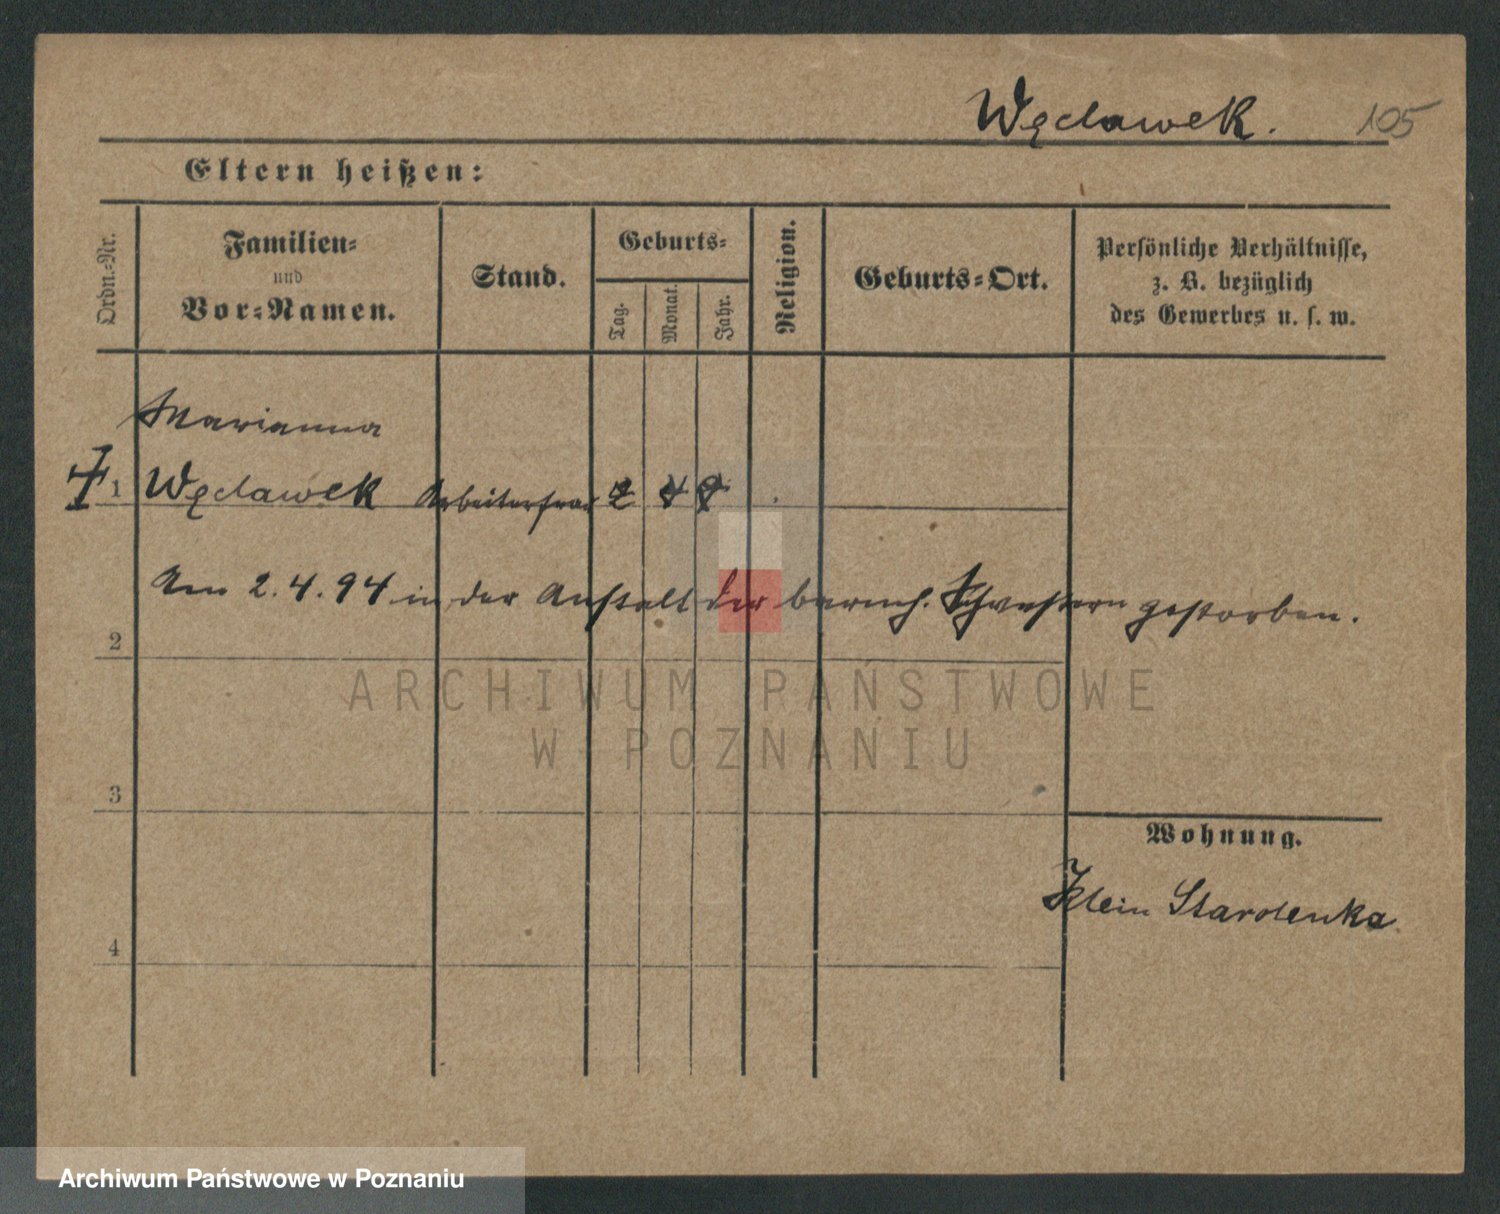 Węclawek. 105
Eltern heißen:
Ordn.-Nr.
Familien-
und
Vor-Namen.
Stand.
Geburts-
Tag.
Monat.
Jahr.
Religion.
Geburts-Ort.
Persönliche Verhältnisse,
z. B. bezüglich
des Gewerbes u. s. w.
Marianna
1 Węclawek Arbeiterfrau
Am 2.4.94 in der Anstalt der barmh. Schwestern gestorben.
2
3
4
Wohnung.
Klein Starolenka
ARCHIWUM PAŃSTWOWE
W POZNANIU
Archiwum Państwowe w Poznaniu